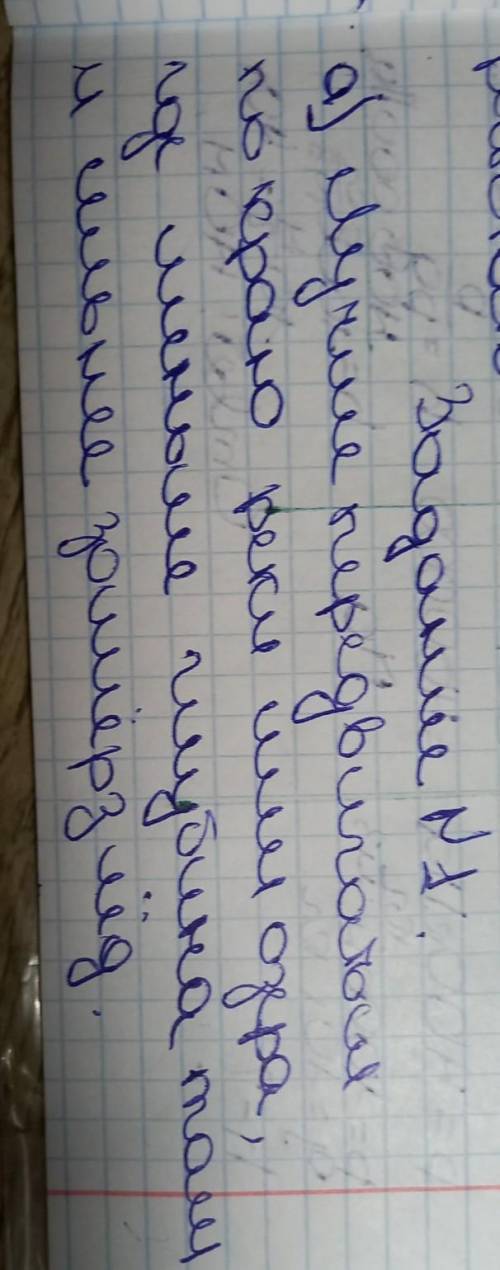 Задание №1.
а) Лучше передвигаться
по краю реки или озра,
где меньше глубина там
и сильнее замёрз лёд.